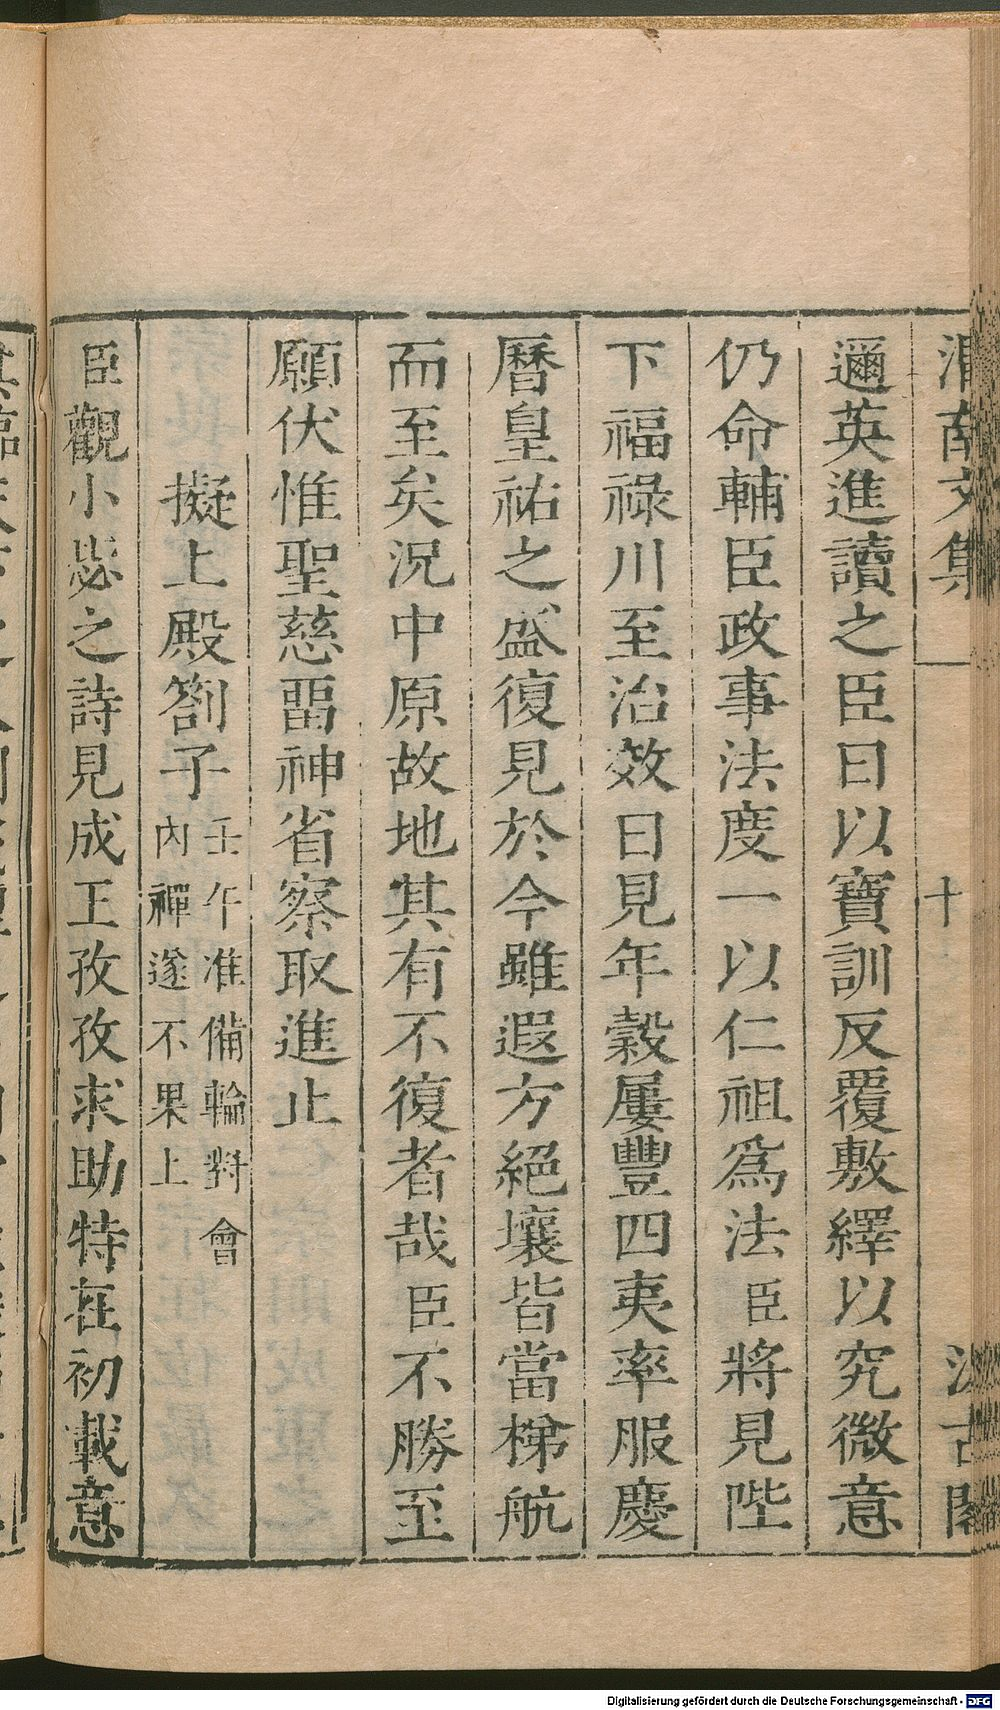 渭南文集
十
汲古閣
邇英進讀之臣曰以寶訓反覆敷繹以究微意
仍命輔臣政事法度一以仁祖爲法臣將見陛
下福祿川至治效日見年穀屢豐四夷率服慶
曆皇祐之盛復見於今雖遐方絕壤皆當梯航
而至矣況中原故地其有不復者哉臣不勝至
願伏惟聖慈畱神省察取進止
擬上殿劄子壬午准備輪對會
內禪遂不果上
臣觀小毖之詩見成王孜孜求助特在初載意
Digitalisierung gefördert durch die Deutsche Forschungsgemeinschaft - DFG